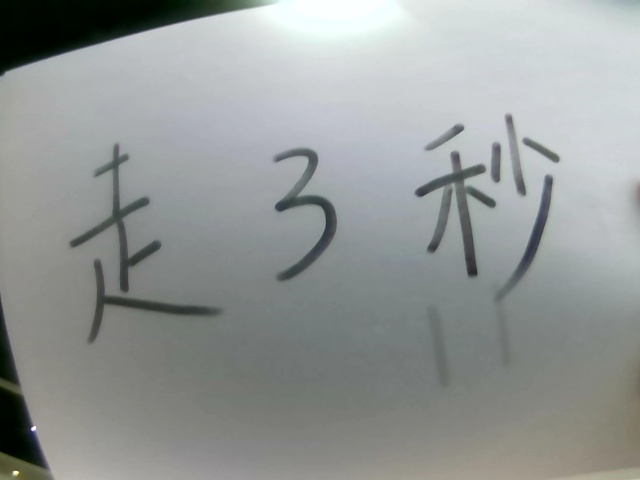 走3秒